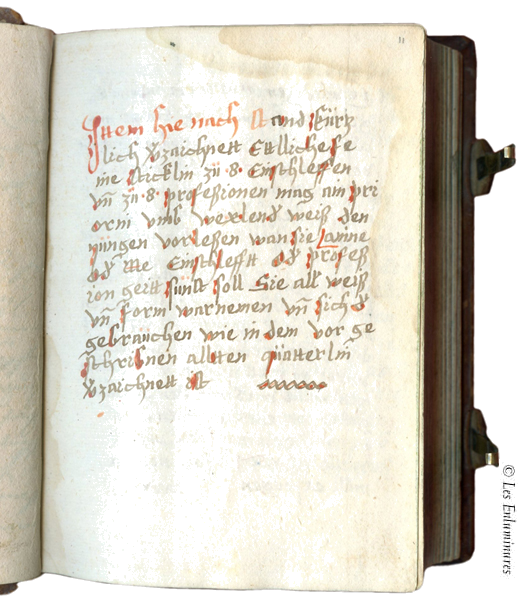 11
Ittem hie nach stand kürtz
lich v̄zaichnett Ettliche se
ine stücklin zü ·8· Einschleffen
vn̄ zü ·8· profeßionen mag ain pri
orin vmb wexlend weiß den
jungen vorleßen wan sie
od̄ Einschlefft od̄ profeß
ion geitt sünst soll Sie all weiß
vn̄ form warnemen vn̄ sich d̄
gebrauchen wie in dem vor ge
schribnen alltten quatterlin
v̄zaichnett ist
© Les Enluminures